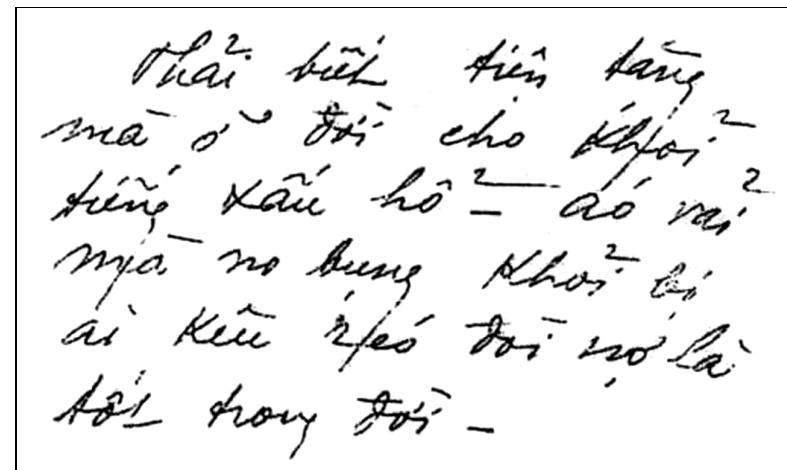 Phải biết tiện tằng
mà ở đời cho khỏi
tiếng xấu hổ - áo vải
mà no bụng khỏi bị
ai kêu réo đòi nợ là
tốt trong đời -